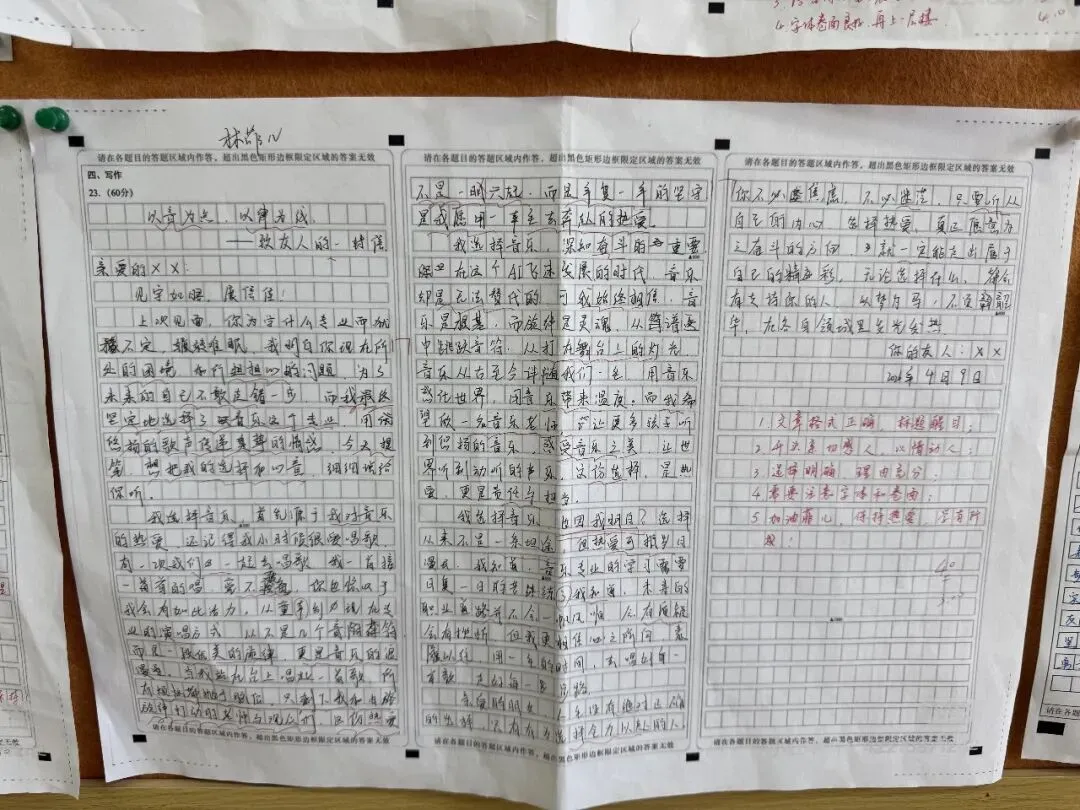 4.字体卷面良好,再上一层楼.
请在各题目的答题区域内作答,超出黑色矩形边框限定区域的答案无效
四、写作
23.(60分)
以音为点,以律为线
——致友人的一封信
亲爱的××:
见字如晤,展信佳!
上次见面,你为学什么专业而
不定,难眠,我明白你现在所
处的困境和所担心的问题,为了
未来的自己不敢走错一步,而我最终
坚定地选择了音乐这个专业,用
悠扬的歌声传递真挚的情感,今天提
笔,想把我的选择和心意,细细讲给
你听。
我选择音乐,首先源于我对音乐
的热爱,还记得我小时候很爱唱歌,
有一次我们一起去唱歌,我一首接
一首的唱,毫不疲惫,你也惊叹于
我会有如此活力,从童年到现在专
业的演唱方式,从不是几个音符
而是一段优美的旋律,更是音乐的浪
漫。当我站在台上唱起一首歌,所
请在各题目的答题区域内作答,超出黑色矩形边框限定区域的答案无效
请在各题目的答题区域内作答,超出黑色矩形边框限定区域的答案无效
不是一时兴起,而是年复一年的坚守
是我愿用一辈子去奔赴的热爱。
我选择音乐,深知奋斗的重要
在这个AI飞速发展的时代,音乐
却是无法替代的,我始终相信,音
乐是根基,而旋律是灵魂,从简谱
中跳跃音符,从打在舞台上的灯光,
音乐从古至今伴随我们一生,用音乐
感化世界,用音乐带来温度。而我希
望做一名音乐老师,让更多孩子听
到悠扬的音乐,感受音乐之美,让世
界听到动听的声乐,这份选择,是热
爱,更是责任与担当。
我选择音乐,也因我明白?选择
从来不是一条坦途,但热爱可抵岁月
漫长,我知道,音乐专业的学习需要
日复一日的苦练,我知道,未来的
职业道路并不会一帆风顺,会有质疑
会有挫折,但我更相信
难以往,用一生的时间,去唱好每一
首歌
亲爱的朋友,人生没有绝对正确
的选择,只有
请在各题目的答题区域内作答,超出黑色矩形边框限定区域的答案无效
请在各题目的答题区域内作答,超出黑色矩形边框限定区域的答案无效
你不必焦虑,不必迷茫,只要听从
自己的内心,选择热爱,真正愿意为
之奋斗的方向,就一定能走出属于
自己的精彩,无论选择什么,总会
有支持你的人,以梦为马,不负韶
华,在各自领域里发光发热
你的友人:××
2026年4月9日
1.文章格式正确,标题醒目;
2.开头亲切感人,以情动人;
3.选择明确,理由充分;
4.需要注意字体和卷面;
5.加油,保持热爱,
40
请在各题目的答题区域内作答,超出黑色矩形边框限定区域的答案无效